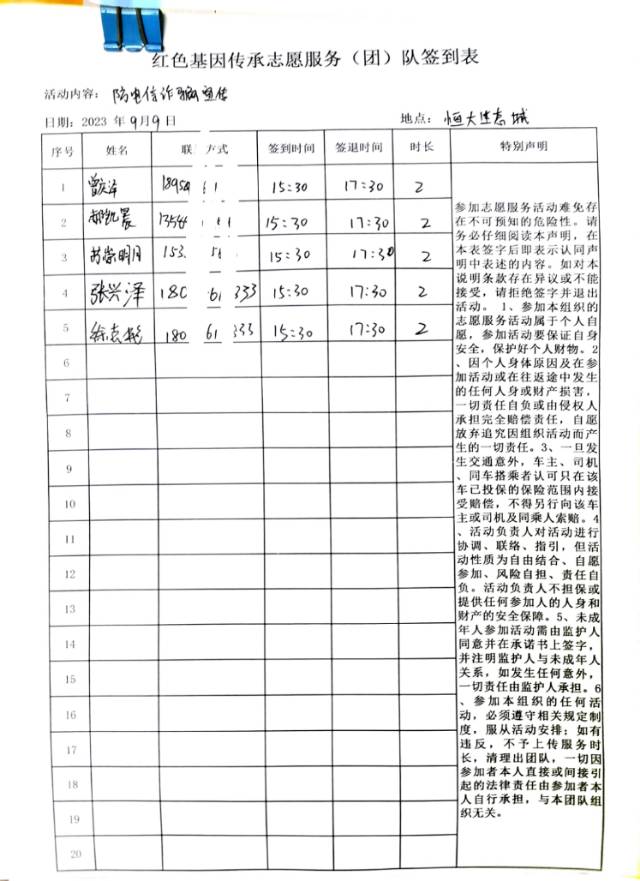 红色基因传承志愿服务（团）队签到表
活动内容：防电信诈骗宣传
日期：2023 年9月9日 地点：恒大生态城
序号 姓名 联 方式 签到时间 签退时间 时长 特别声明
1 15:30 17:30 2
2 15:30 17:30 2
3 苏崇明月 153 15:30 17:30 2
4 张兴泽 180 61 333 15:30 17:30 2
5 徐志彬 180 61 333 15:30 17:30 2
6
7
8
9
10
11
12
13
14
15
16
17
18
19
20
参加志愿服务活动难免存
在不可预知的危险性。请
务必仔细阅读本声明，在
本表签字后即表示认同声
明中表述的内容。如对本
说明条款存在异议或不能
接受，请拒绝签字并退出
活动。 1、参加本组织的
志愿服务活动属于个人自
愿，参加活动要保证自身
安全，保护好个人财物。2
、因个人身体原因及在参
加活动或在往返途中发生
的任何人身或财产损害，
一切责任自负或由侵权人
承担完全赔偿责任，自愿
放弃追究因组织活动而产
生的一切责任。3、一旦发
生交通意外，车主、司机
、同车搭乘者认可只在该
车已投保的保险范围内接
受赔偿，不得另行向该车
主或司机及同乘人索赔。4
、活动负责人对活动进行
协调、联络、指引，但活
动性质为自由结合、自愿
参加、风险自担、责任自
负。活动负责人不担保或
提供任何参加人的人身和
财产的安全保障。5、未成
年人参加活动需由监护人
同意并在承诺书上签字，
并注明监护人与未成年人
关系，如发生任何意外，
一切责任由监护人承担。6
、参加本组织的任何活
动，必须遵守相关规定制
度，服从活动安排；如有
违反，不予上传服务时
长，清理出团队，一切因
参加者本人直接或间接引
起的法律责任由参加者本
人自行承担，与本团队组
织无关。